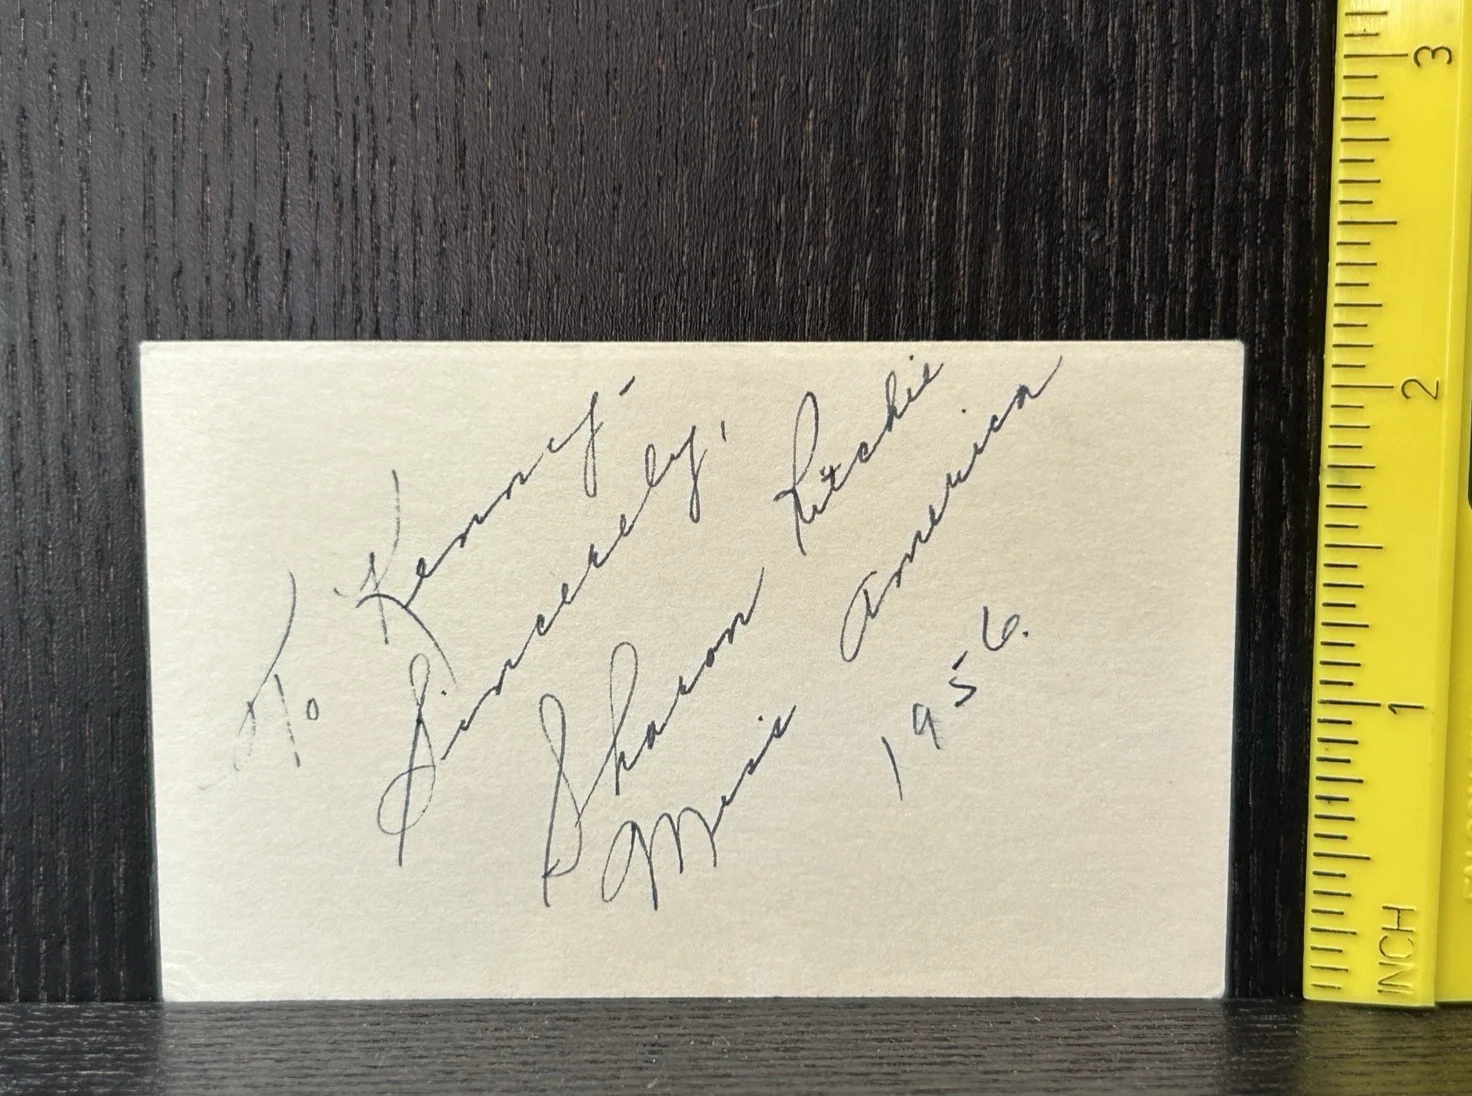 To Kenny-
Sincerely,
Sharon Ritchie
Miss America
1956.
3
2
1
INCH